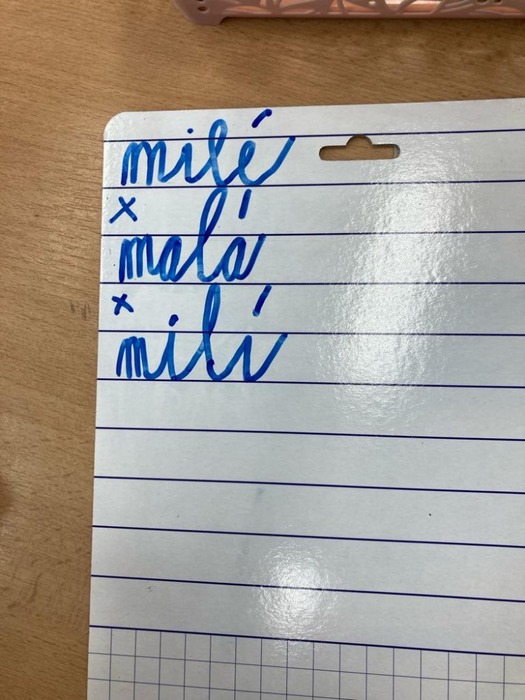 milé
x
malá
x
milí